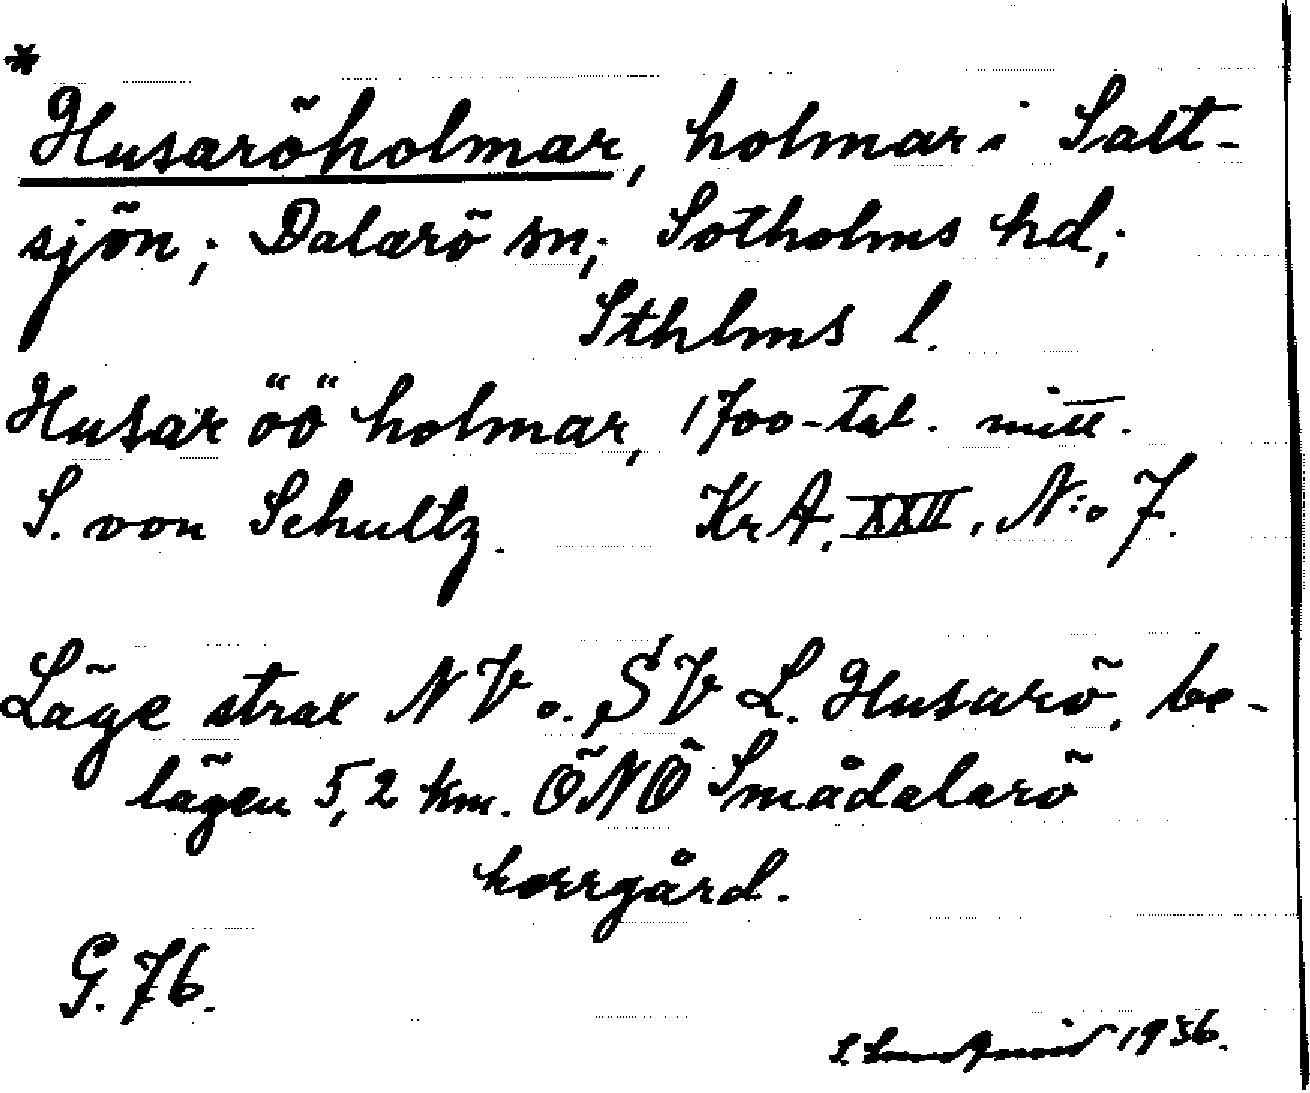 *
Husaröholmar, holmar i Salt-
sjön; Dalarö sn; Sotholms hd;
Sthlms l.
Husar öö holmar, 1700-tal. mitt.
S. von Schultz. KrA, XXII, N:o 7.
Läge strax NV o. SV L. Husarö, be-
lägen 5,2 km. ÖNÖ Smådalarö
herrgård.
G. 76.
1936.